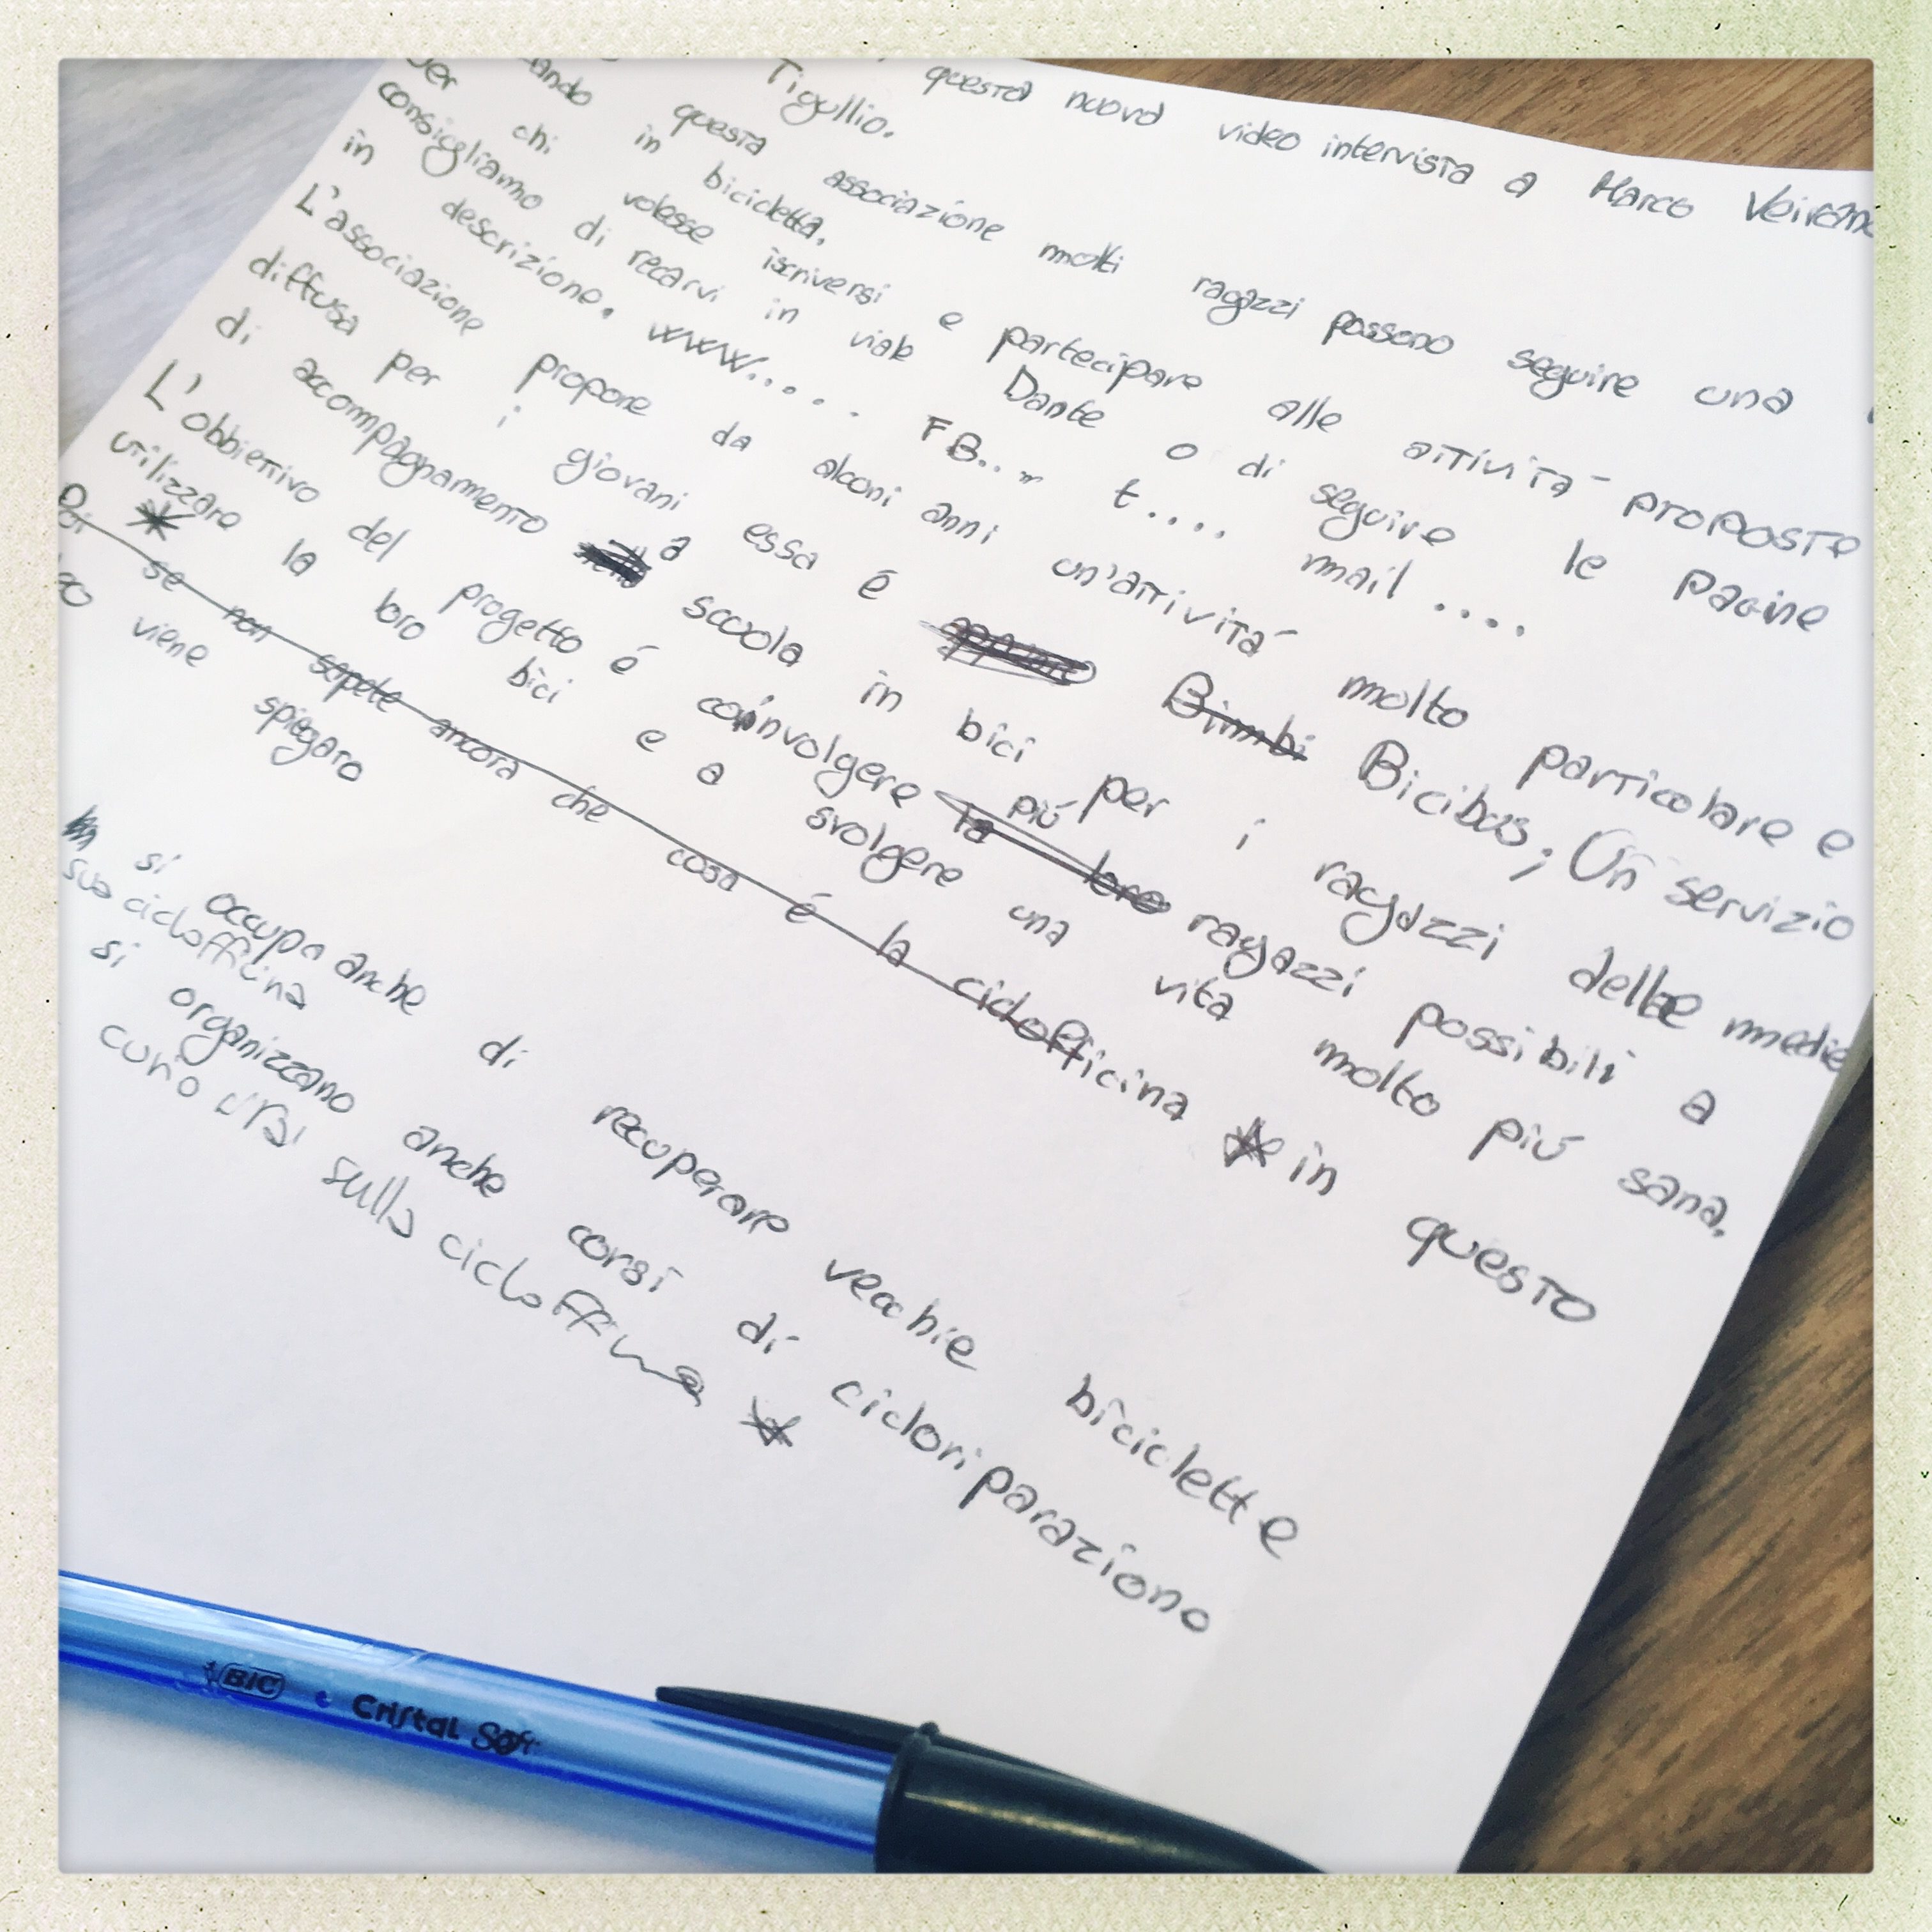 questa nuova video intervista a Marco
Tigullio.
questa associazione molti ragazzi possono seguire una
in bicicletta.
per chi volesse iscriversi e partecipare alle attività proposte
consigliamo di recarvi in viale Dante o di seguire le pagine
in descrizione. www..... FB.... t.... mail ....
L'associazione propone da alcuni anni un'attività molto particolare e
diffusa per i giovani essa é Bimbi Bicibus; Un servizio
di accompagnamento a scuola in bici per i ragazzi delle medie
L'obbiettivo del progetto é coinvolgere la loro più ragazzi possibili a
utilizzare la loro bici e a svolgere una vita molto più sana.
Poi se non sapete ancora che cosa é la ciclofficina * in questo
*
viene spiegato
si occupa anche di recuperare vecchie biciclette
sua cicloffcina
si organizzano anche corsi di cicloriparazione
sulla *
BIC Cristal Soft